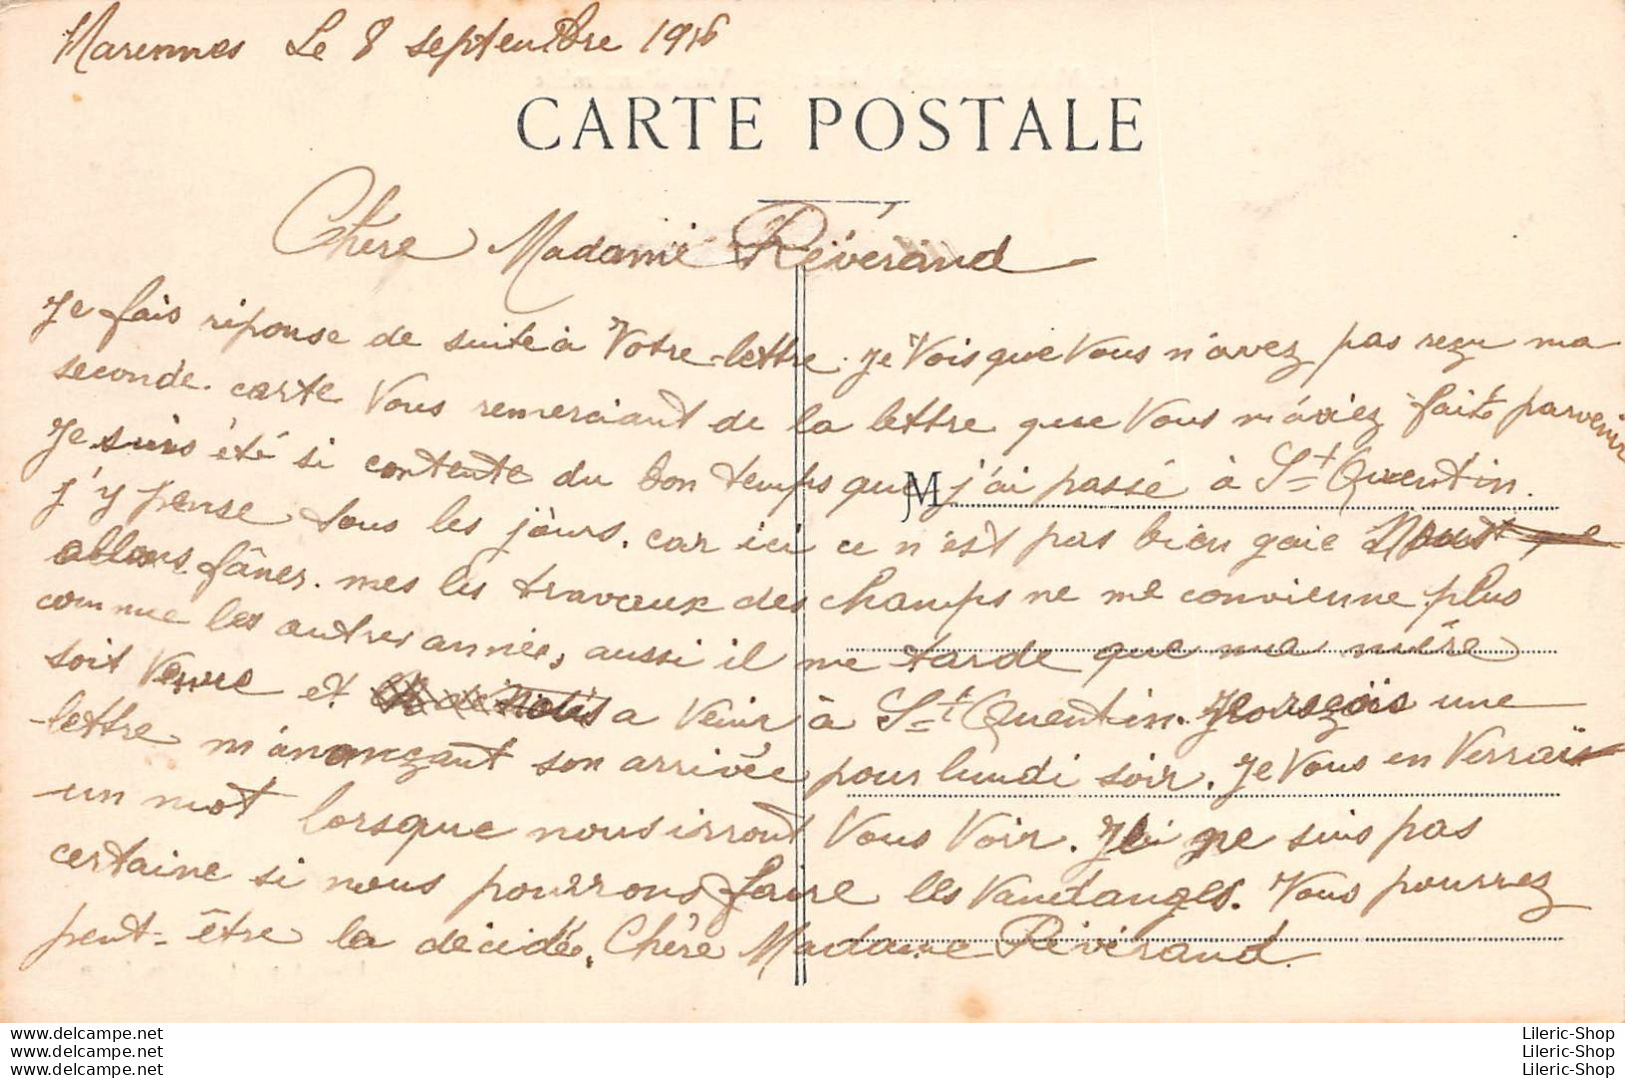 Marennes Le 8 septembre 1916
CARTE POSTALE
Chère Madame Réverand
Je fais réponse de suite à Votre lettre. Je Vois que Vous n'avez pas reçu ma
seconde carte Vous remerciant de la lettre que Vous m'aviez faite parvenir
Je suis été si contente du bon temps que j'ai passé à St Quentin.
M
j'y pense tous les jours. car ici ce n'est pas bien gaie Nous
allons fâner. mes les travaux des champs ne me convienne plus
comme les autres année, aussi il me tarde que ma mère
soit Venue et a Venir à St Quentin. une
lettre m'anonçant son arrivée pour lundi soir. Je Vous en Verrais
un mot lorsque nous irront Vous Voir. Je ne suis pas
certaine si nous pourrons faire les Vandanges. Vous pourrez
peut-être la décidée. Chère Madame Réverand.
www.delcampe.net
www.delcampe.net
www.delcampe.net
Lileric-Shop
Lileric-Shop
Lileric-Shop